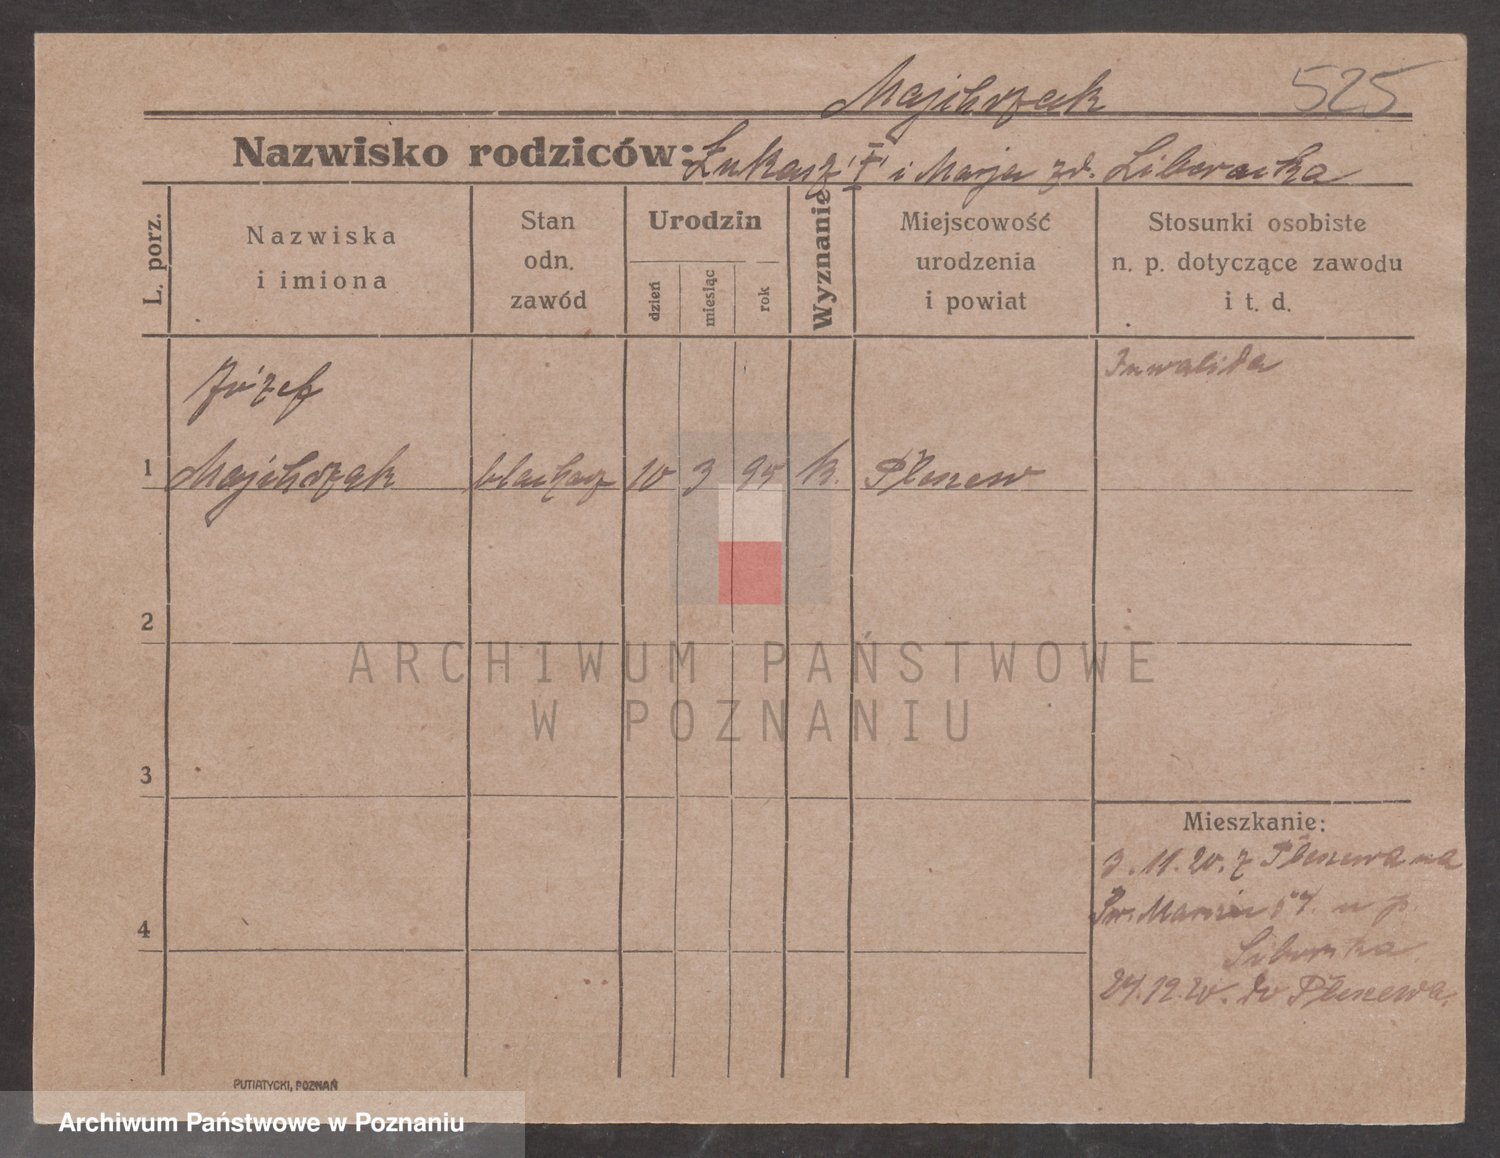 Majchrzak 525
Nazwisko rodziców: Łukasz i Marja zd. Liberacka
L. porz.
Nazwiska
i imiona
Stan
odn.
zawód
Urodzin
dzień
miesiąc
rok
Wyznanie
Miejscowość
urodzenia
i powiat
Stosunki osobiste
n. p. dotyczące zawodu
i t. d.
Józef
Inwalida
1 Majchrzak blacharz 10 3 95 k. Pleszew
2
ARCHIWUM PAŃSTWOWE
W POZNANIU
3
Mieszkanie:
3.11.20. z Pleszewa na
Św. Marcin 57. u p.
4
24.12.20. do Pleszewa.
PUTIATYCKI, POZNAŃ
Archiwum Państwowe w Poznaniu